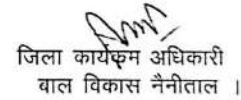 जिला कार्यक्रम अधिकारी
बाल विकास नैनीताल ।